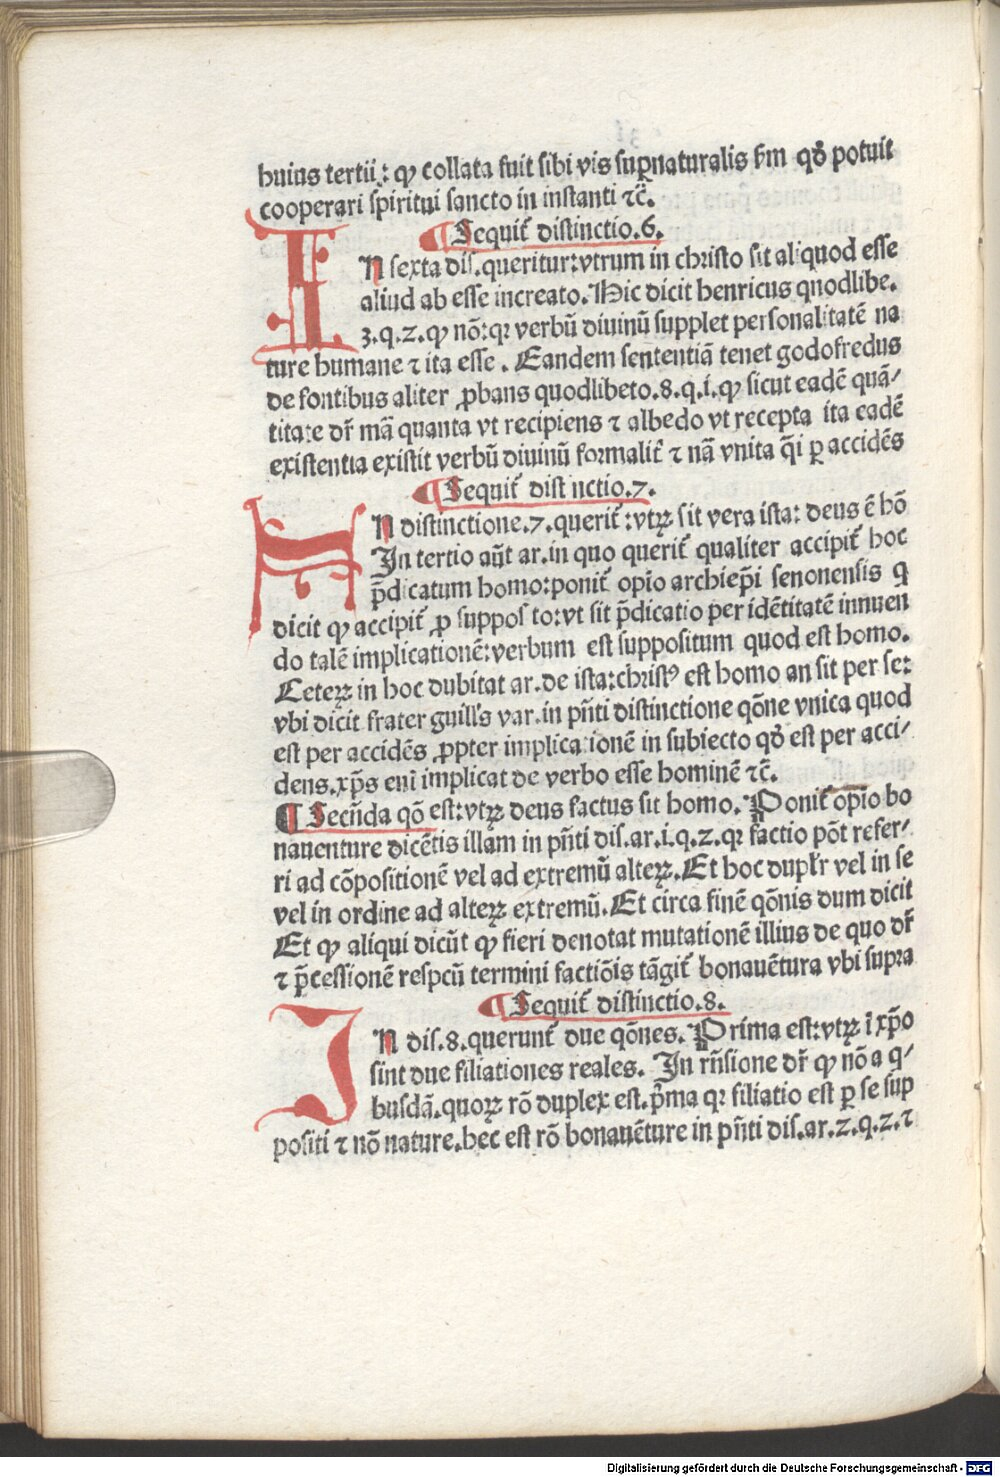 huius tertii: ꝙ collata fuit sibi vis suꝑnaturalis ẜm qđ potuit
cooperari spiritui sancto in instanti ⁊c̄.
¶ Sequit̃ distinctio.6.
IN sexta dis.queritur:vtrum in christo sit aliquod esse
aliud ab esse increato.Hic dicit henricus quodlibe.
3.q.2.ꝙ nō:qꝛ verbū diuinū supplet personalitatē na
ture humane ⁊ ita esse. Eandem sententiā tenet godofredus
de fontibus aliter ꝓbans quodlibeto.8.q.i.ꝙ sicut eadē quā⸗
titate dr̄ mā quanta vt recipiens ⁊ albedo vt recepta ita eadē
existentia existit verbū diuinū formalit̃ ⁊ nā vnita q̄i ꝑ accidēs
¶ Sequit̃ distinctio.7.
IN distinctione.7.querit̃:vtꝝ sit vera ista: deus ē hō
In tertio aūt ar.in quo querit̃ qualiter accipit̃ hoc
p̄dicatum homo:ponit̃ opīo archiep̄i senonensis q
dicit ꝙ accipit̃ ꝓ supposito:vt sit p̄dicatio per idētitatē innuen
do talē implicationē:verbum est suppositum quod est homo.
Ceteꝝ in hoc dubitat ar.de ista:christꝰ est homo an sit per se:
vbi dicit frater guill's var.in pñti distinctione qōne vnica quod
est per accidēs ꝓpter implicationē in subiecto qđ est per acci⸗
dens.xp̄s enī implicat de verbo esse hominē ⁊c̄.
¶ Secūda qō est:vtꝝ deus factus sit homo. Ponit̃ opīo bo
nauenture dicētis illam in pñti dis.ar.i.q.2.qꝛ factio pōt refer⸗
ri ad cōpositionē vel ad extremū alteꝝ.Et hoc duplr̄ vel in se
vel in ordine ad alteꝝ extremū.Et circa finē qōnis dum dicit
Et ꝙ aliqui dicūt ꝙ fieri denotat mutationē illius de quo dr̄
⁊ p̄cessionē respcū termini factiōis tāgit̃ bonauētura vbi supra
¶ Sequit̃ distinctio.8.
IN dis.8.querunt̃ due qōnes. Prima est:vtꝝ ī xp̄o
sint due filiationes reales. In rñsione dr̄ ꝙ nō a q⸗
busdā.quoꝝ rō duplex est.p̄ma qꝛ filiatio est ꝑ se sup
positi ⁊ nō nature.hec est rō bonauēture in pñti dis.ar.2.q.2.⁊
Digitalisierung gefördert durch die Deutsche Forschungsgemeinschaft - DFG